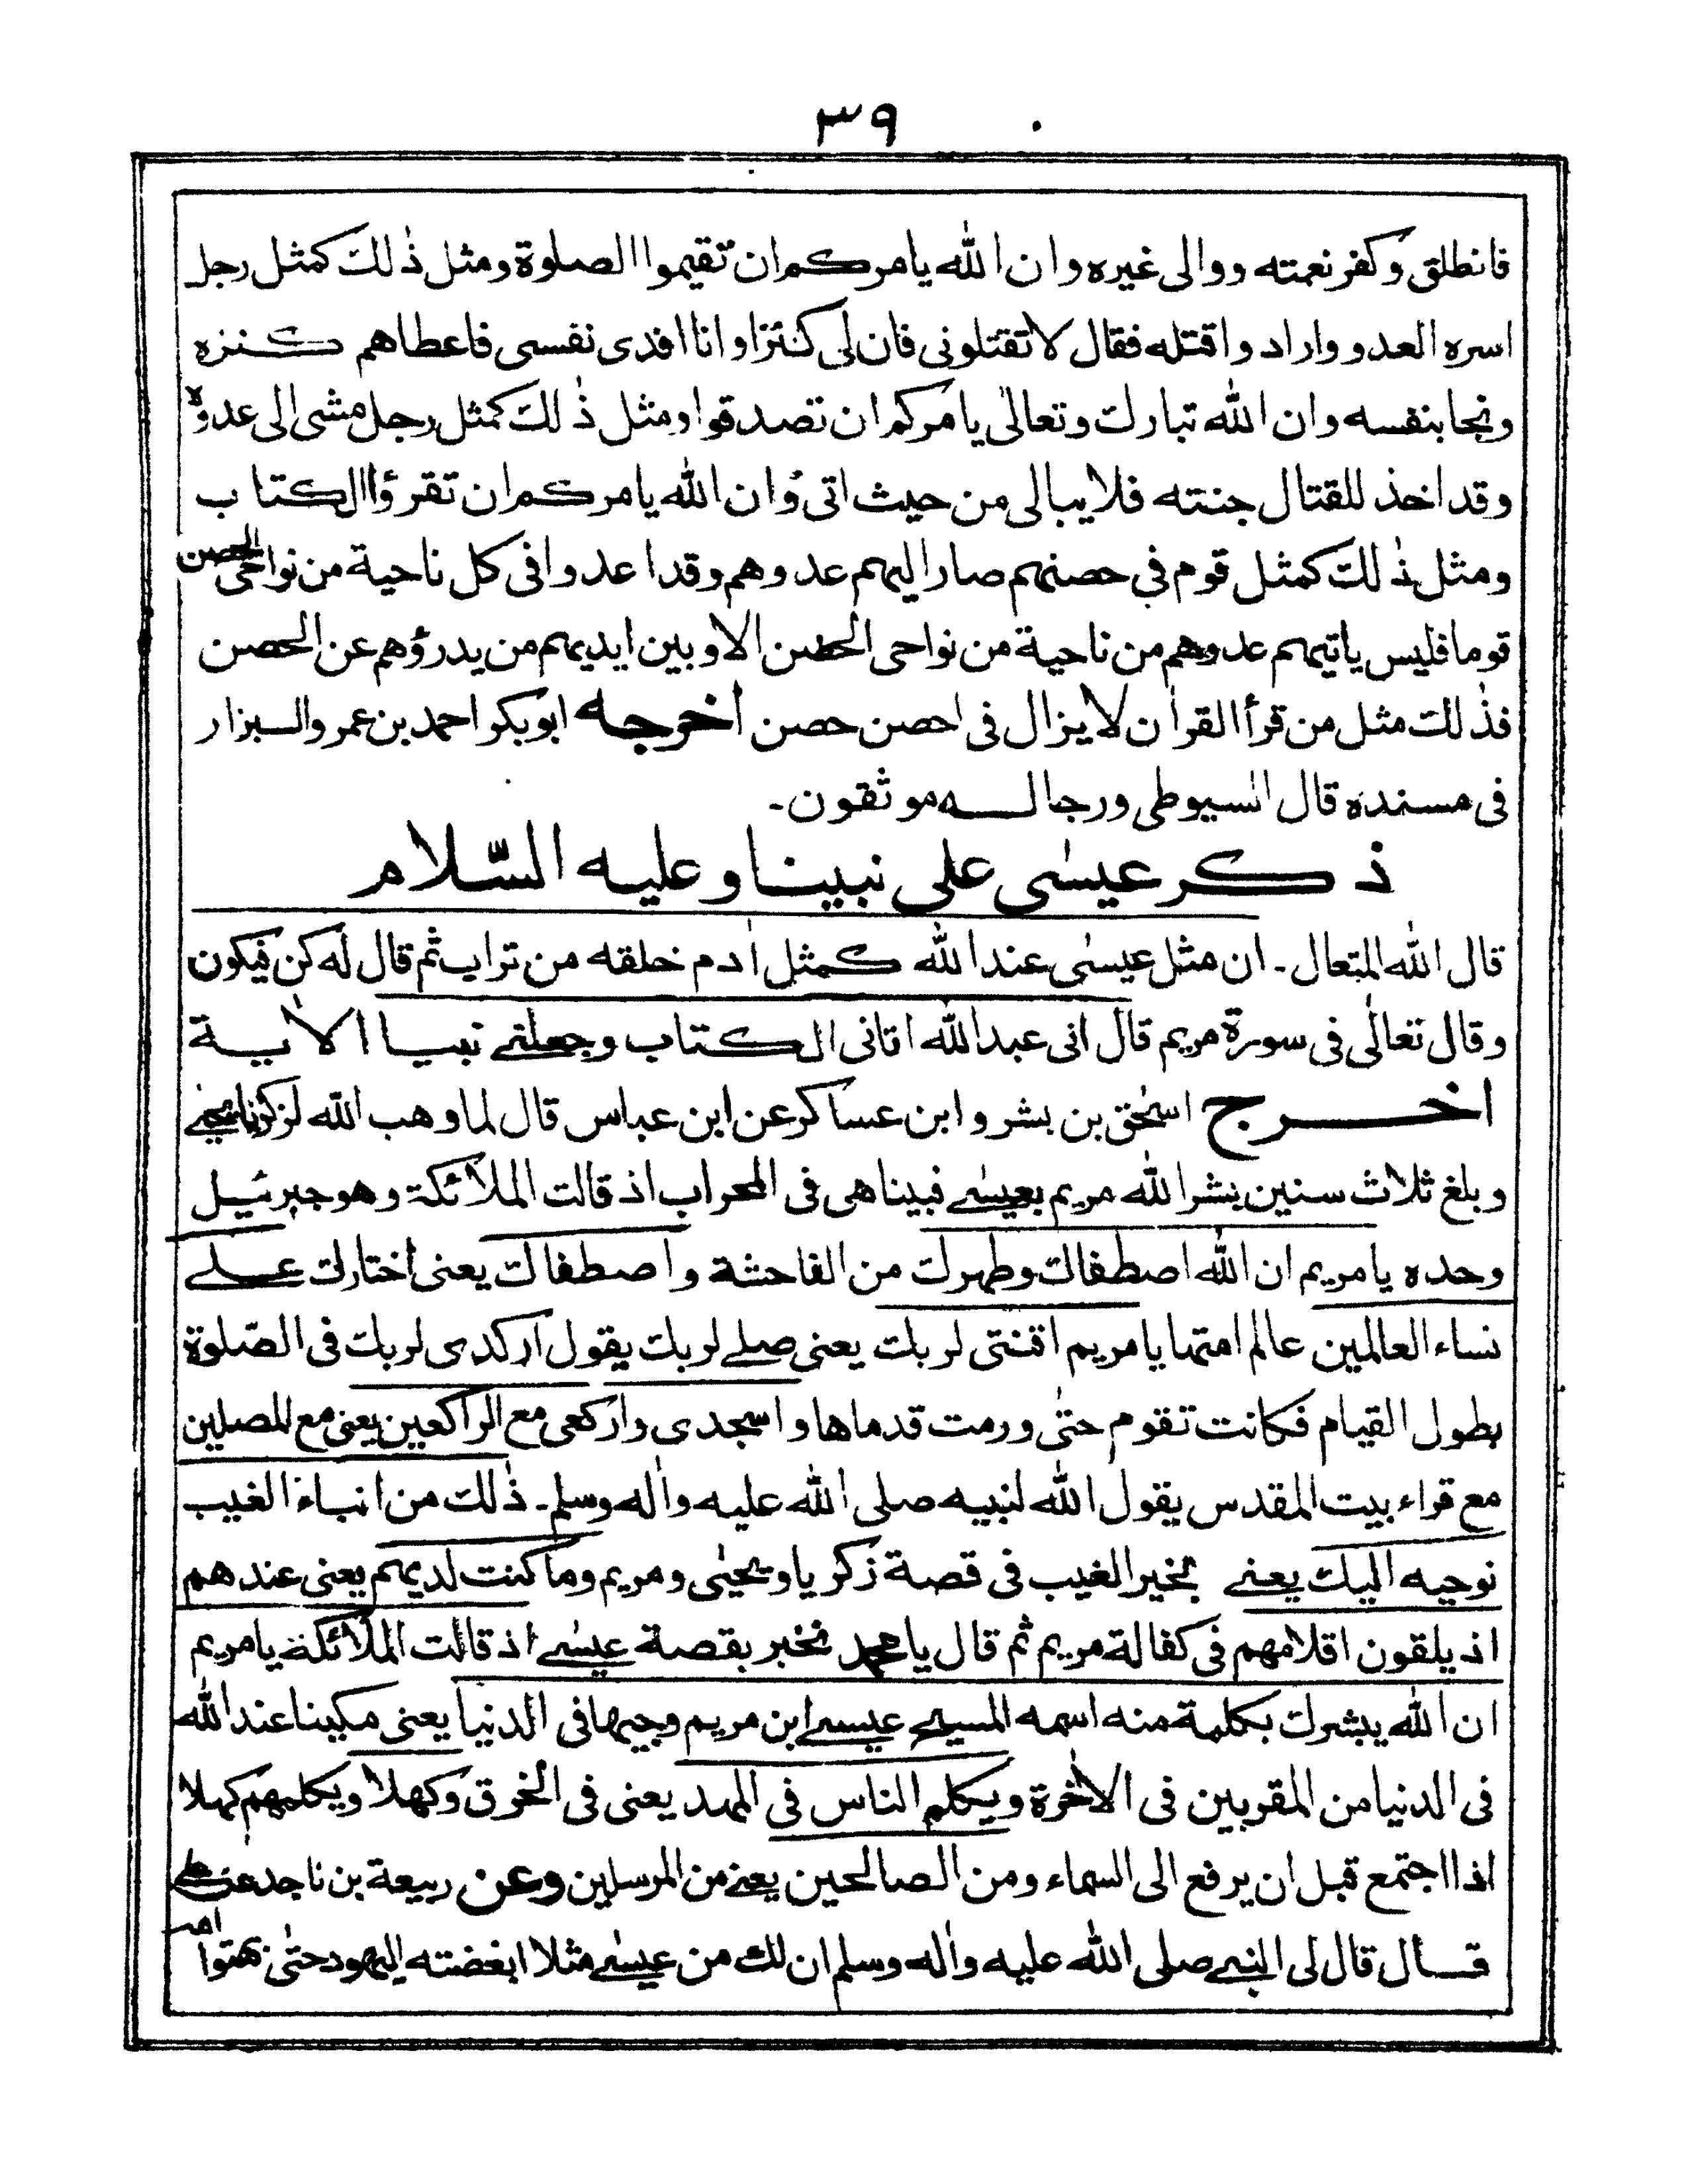 ٣٩
فانطلق وكفر نعمته ووالى غيره وان الله يامركم ان تقيموا الصلوة ومثل ذٰلك كمثل رجل
اسره العدو واراد واقتله فقال لا تقتلونى فان لى كنزا وانا افدى نفسى فاعطاهم كنزه
ونجا بنفسه وان الله تبارك وتعالىٰ يامركم ان تصدقوا ومثل ذٰلك كمثل رجل مشى الى عدوه
وقد اخذ للقتال جنته فلا يبالى من حيث اتى وان الله يامركم ان تقرؤا الكتاب
ومثل ذٰلك كمثل قوم فى حصنهم صار اليهم عدوهم وقد اعدوا فى كل ناحية من نواحى الحصن
قوما فليس ياتيهم عدوهم من ناحية من نواحى الحصن الا وبين ايديهم من يدرؤهم عن الحصن
فذٰلك مثل من قرأ القراٰن لا يزال فى احصن حصن اخرجه ابوبكر احمد بن عمر والبزار
فى مسنده قال السيوطى ورجاله موثقون-
ذكر عيسىٰ على نبينا وعليه السّلام
قال الله المتعال- ان مثل عيسىٰ عند الله كمثل اٰدم خلقه من تراب ثم قال له كن فيكون
وقال تعالىٰ فى سورة مريم قال انى عبد الله اتانى الكتاب وجعلنے نبيا الاٰية
اخرج اسحٰق بن بشر وابن عساكر عن ابن عباس قال لما وهب الله لزكريا يحيٰے
وبلغ ثلاث سنين بشر الله مريم بعيسٰے فبينا هى فى المحراب اذ قالت الملائكة وهو جبرئيل
وحده يا مريم ان الله اصطفاك وطهرك من الفاحشة واصطفاك يعنى اختارك علے
نساء العالمين عالم امتها يا مريم اقنتى لربك يعنى صلے لربك يقول اركدى لربك فى الصّلوة
بطول القيام فكانت تقوم حتىٰ ورمت قدماها واسجدى واركعى مع الراكعين يعنى مع المصلين
مع قراء بيت المقدس يقول الله لنبيه صلى الله عليه واٰله وسلم- ذٰلك من انباء الغيب
نوحيه اليك يعنے بخبر الغيب فى قصة زكريا ويحيىٰ ومريم وما كنت لديهم يعنى عندهم
اذ يلقون اقلامهم فى كفالة مريم ثم قال يا محمد نخبر بقصة عيسٰے اذ قالت الملائكة يا مريم
ان الله يبشرك بكلمة منه اسمه المسيح عيسے ابن مريم وجيها فى الدنيا يعنى مكينا عند الله
فى الدنيا من المقربين فى الاٰخرة ويكلم الناس فى المهد يعنى فى الخرق وكهلا ويكلمهم كهلا
اذا اجتمع قبل ان يرفع الى السماء ومن الصالحين يعنے من المرسلين وعن ربيعة بن ناجد عن علے
قال قال لى النبے صلى الله عليه واٰله وسلم ان لك من عيسٰے مثلا ابغضته اليهود حتىٰ بهتوا امه